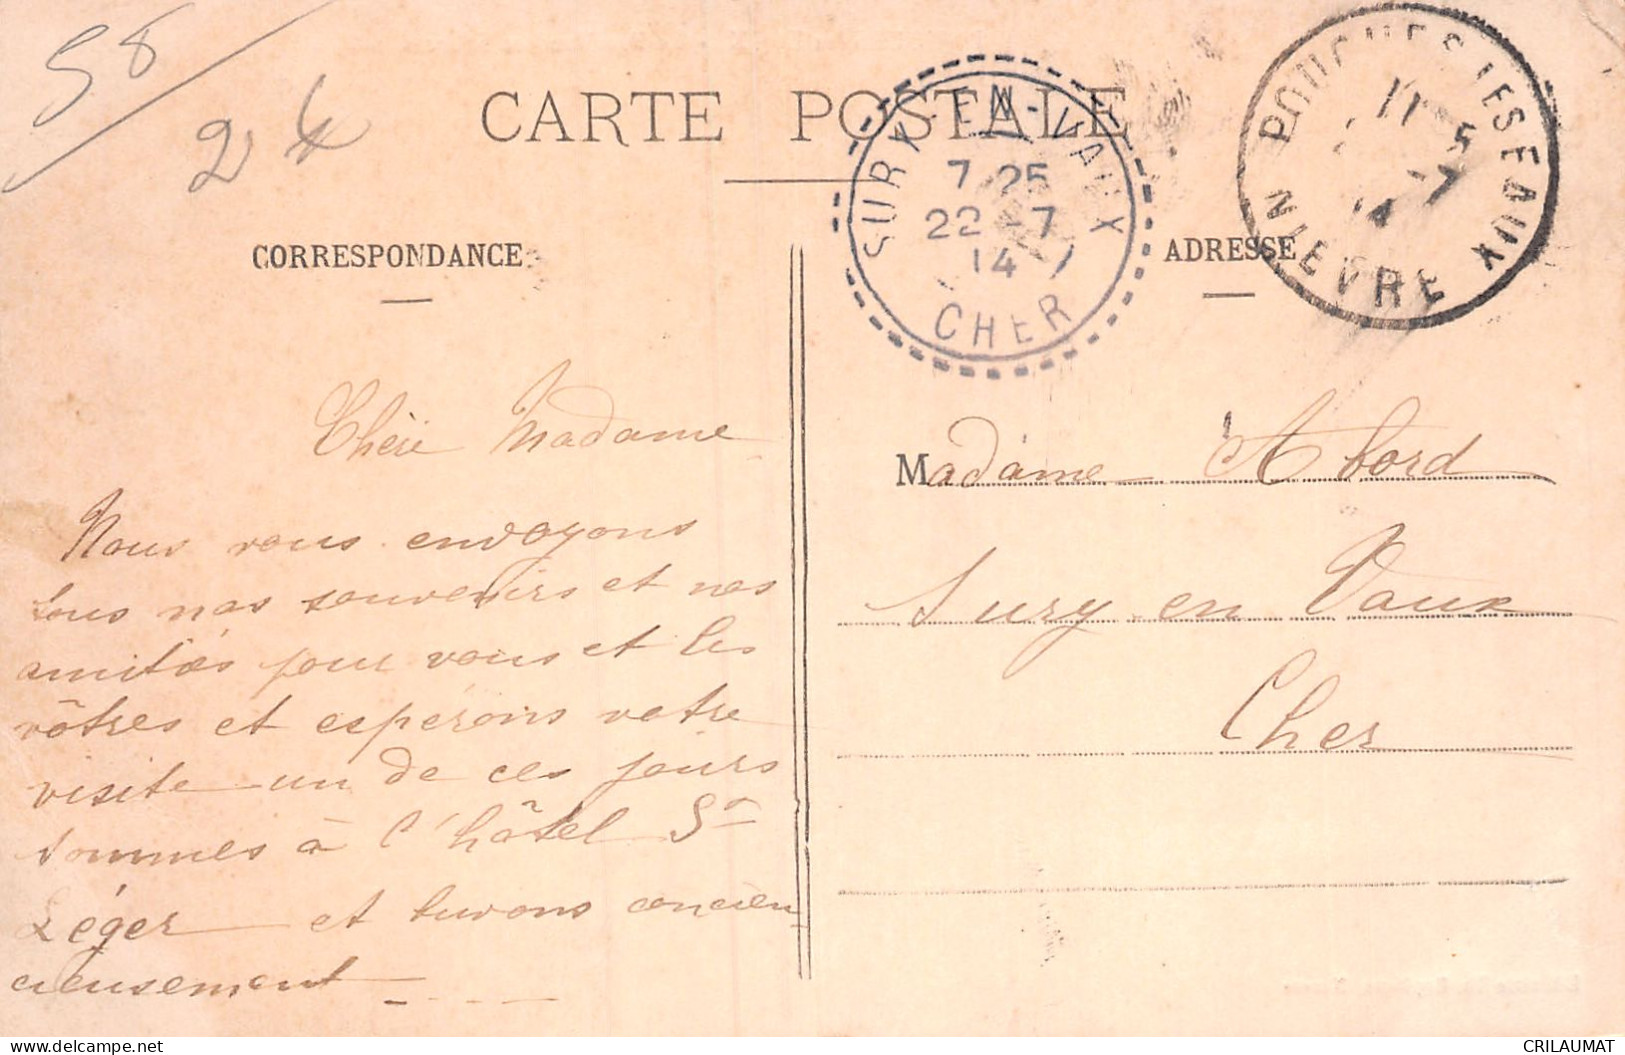 58
24
CARTE POSTALE
SURY-EN-VAUX
7 25
22 - 7
14
CHER
POUGUES LES EAUX
11
5
-7
14
NIEVRE
CORRESPONDANCE
ADRESSE
Chère Madame
Nous vous envoyons
tous nos souvenirs et nos
amitiés pour vous et les
vôtres et espérons votre
visite un de ces jours
sommes à l'hôtel St
Léger et buvons concien
cieusement
Madame Abord
Sury en Vaux
Cher
delcampe.net
CRILAUMAT